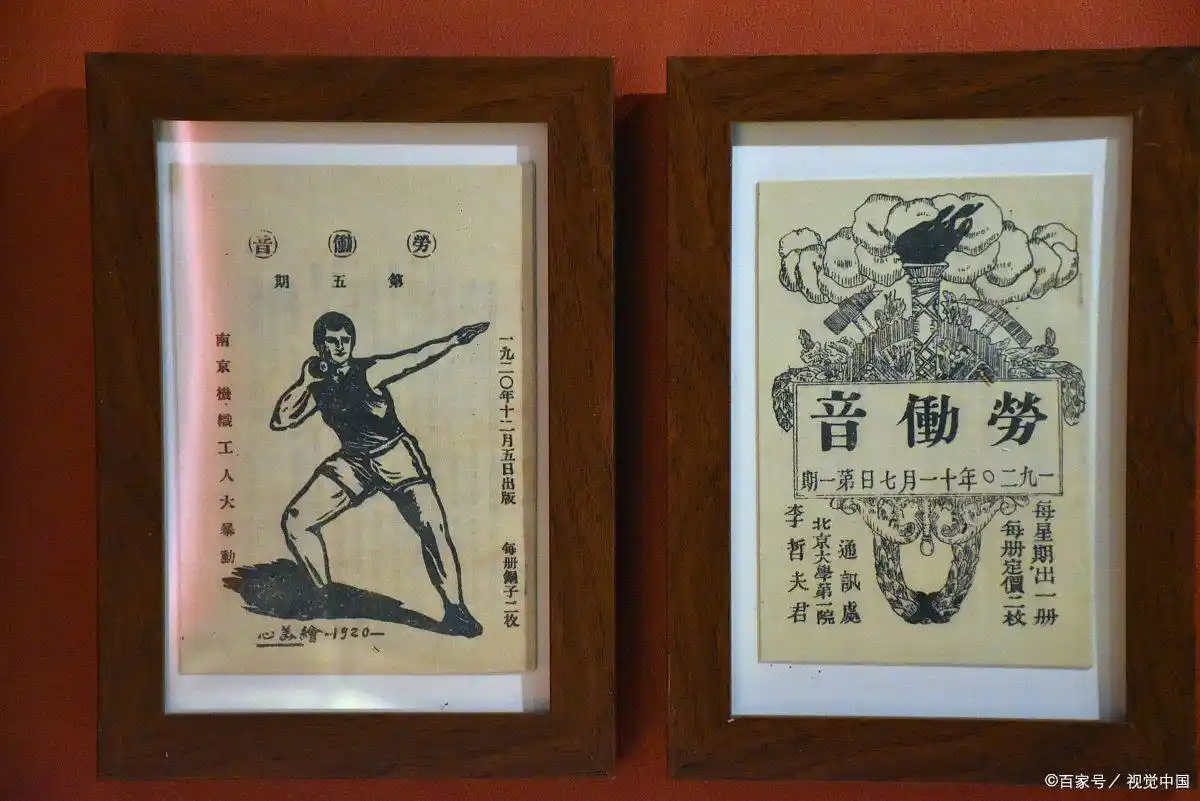 勞働音
第五期
一九二〇年十二月五日出版 每册銅子二枚
南京機織工人大暴動
心美繪--1920—
勞働音
一九二〇年十一月七日第一期
每星期出一册
每册定價二枚
通訊處
北京大學第一院
李哲夫君
©百家号／视觉中国